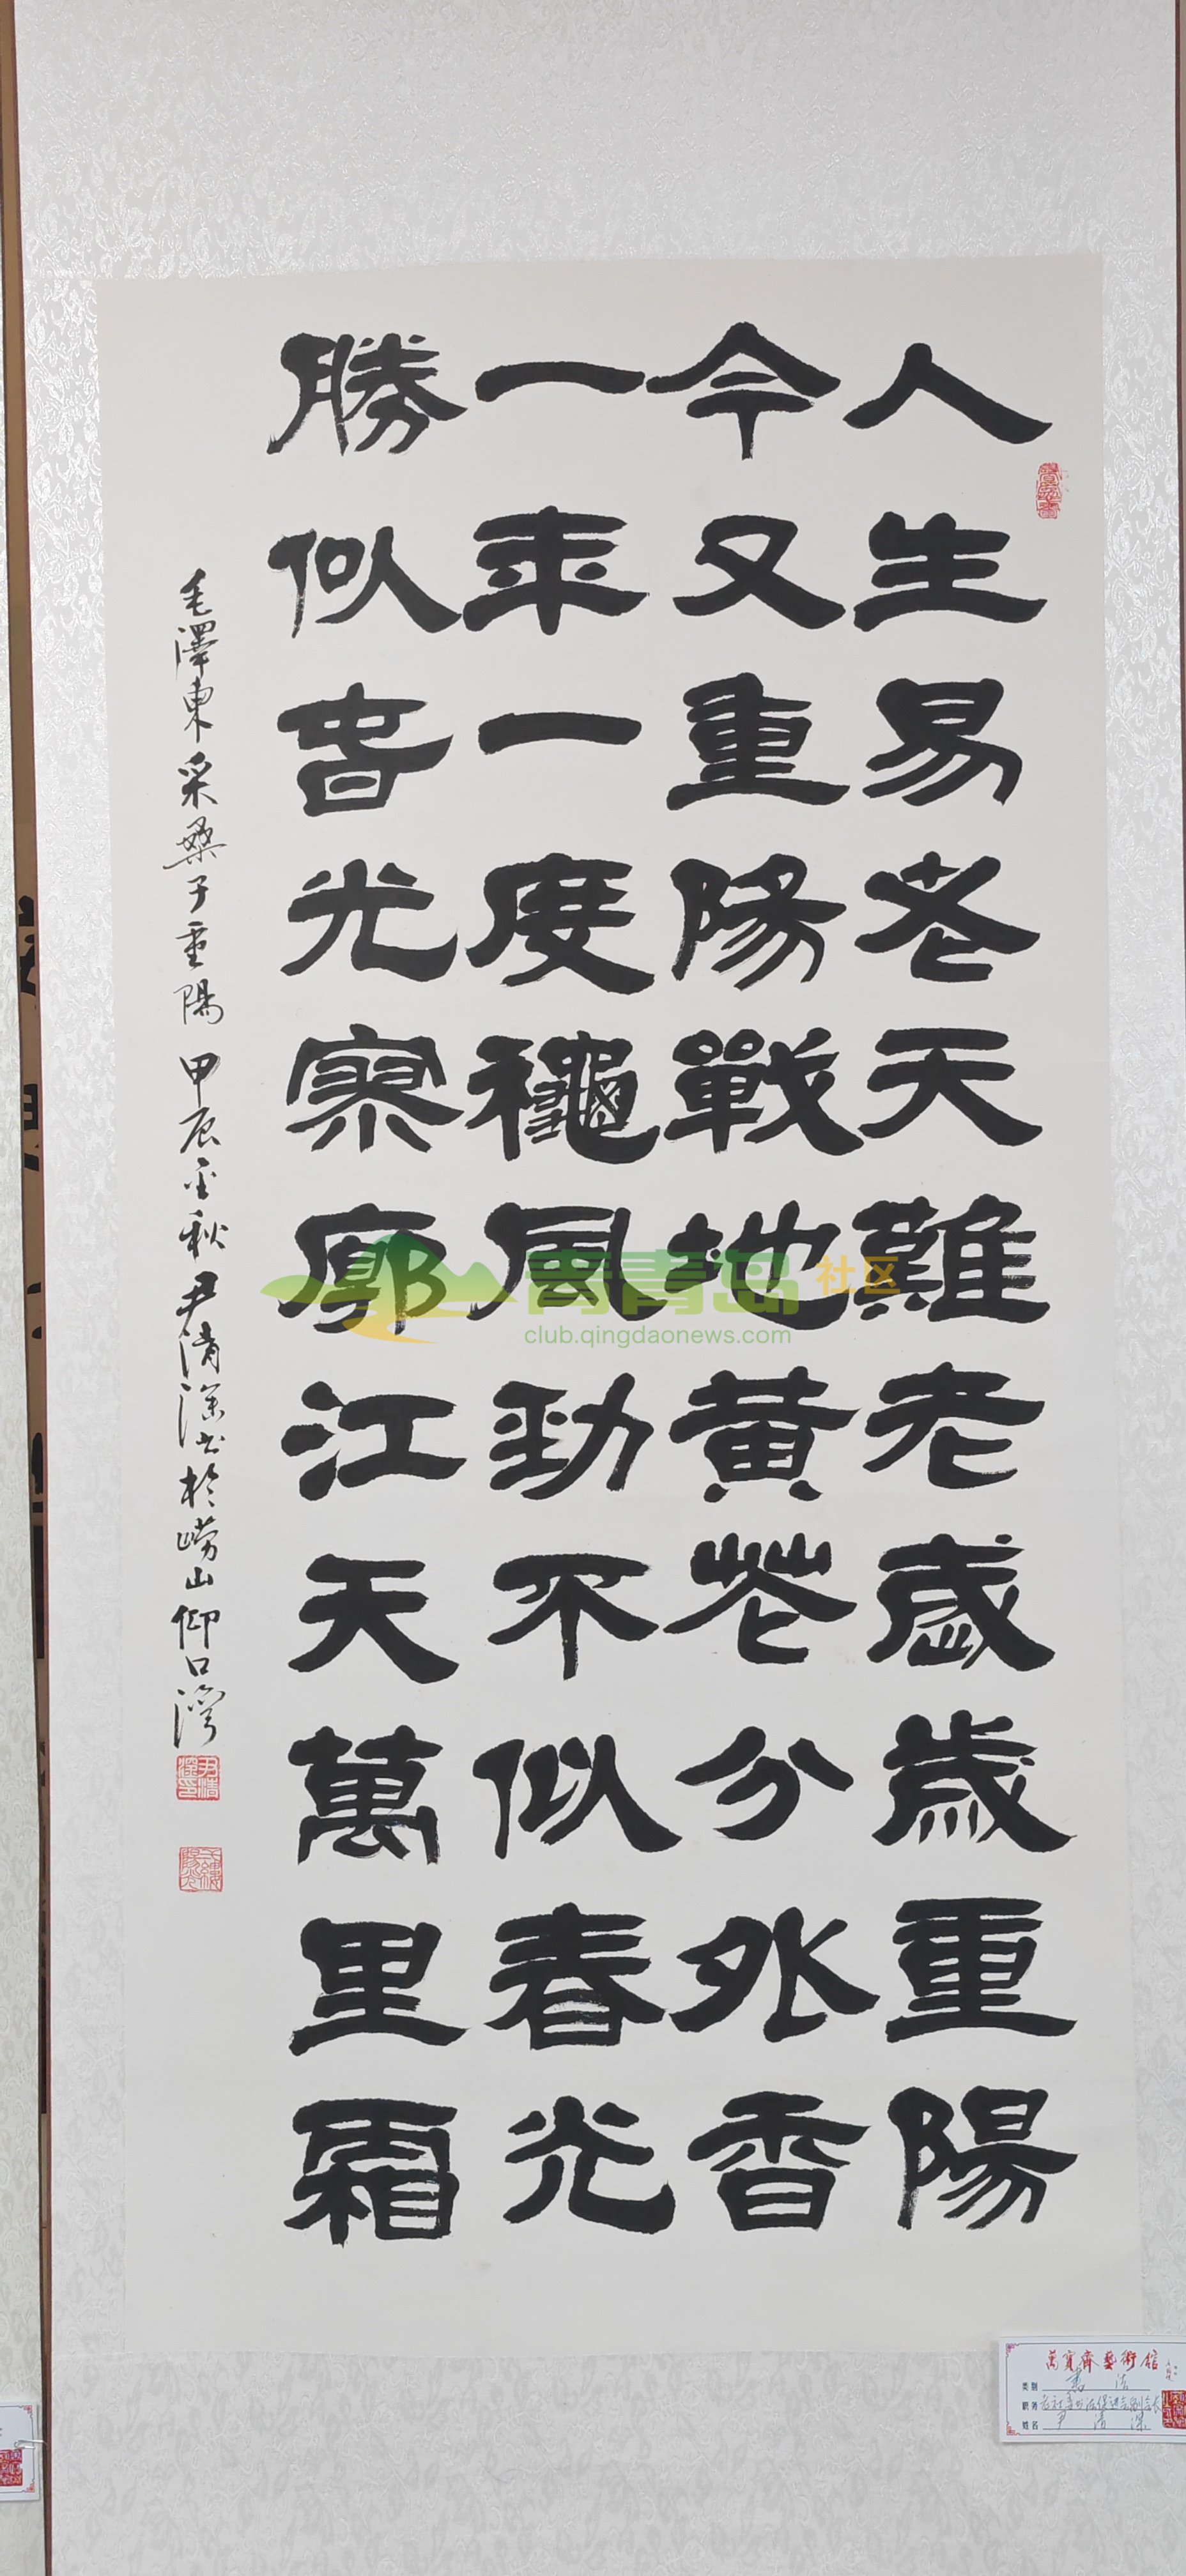 人生易老天難老歲歲重陽
今又重陽戰地黄花分外香
一年一度龝風勁不似春光
勝似春光寥廓江天萬里霜
毛澤東采桑子重陽 甲辰金秋尹清深书於崂山仰口灣
尹清深印
青青岛社区
club.qingdaonews.com
萬寶齋藝術館
类别 書法
职务
姓名 尹清深